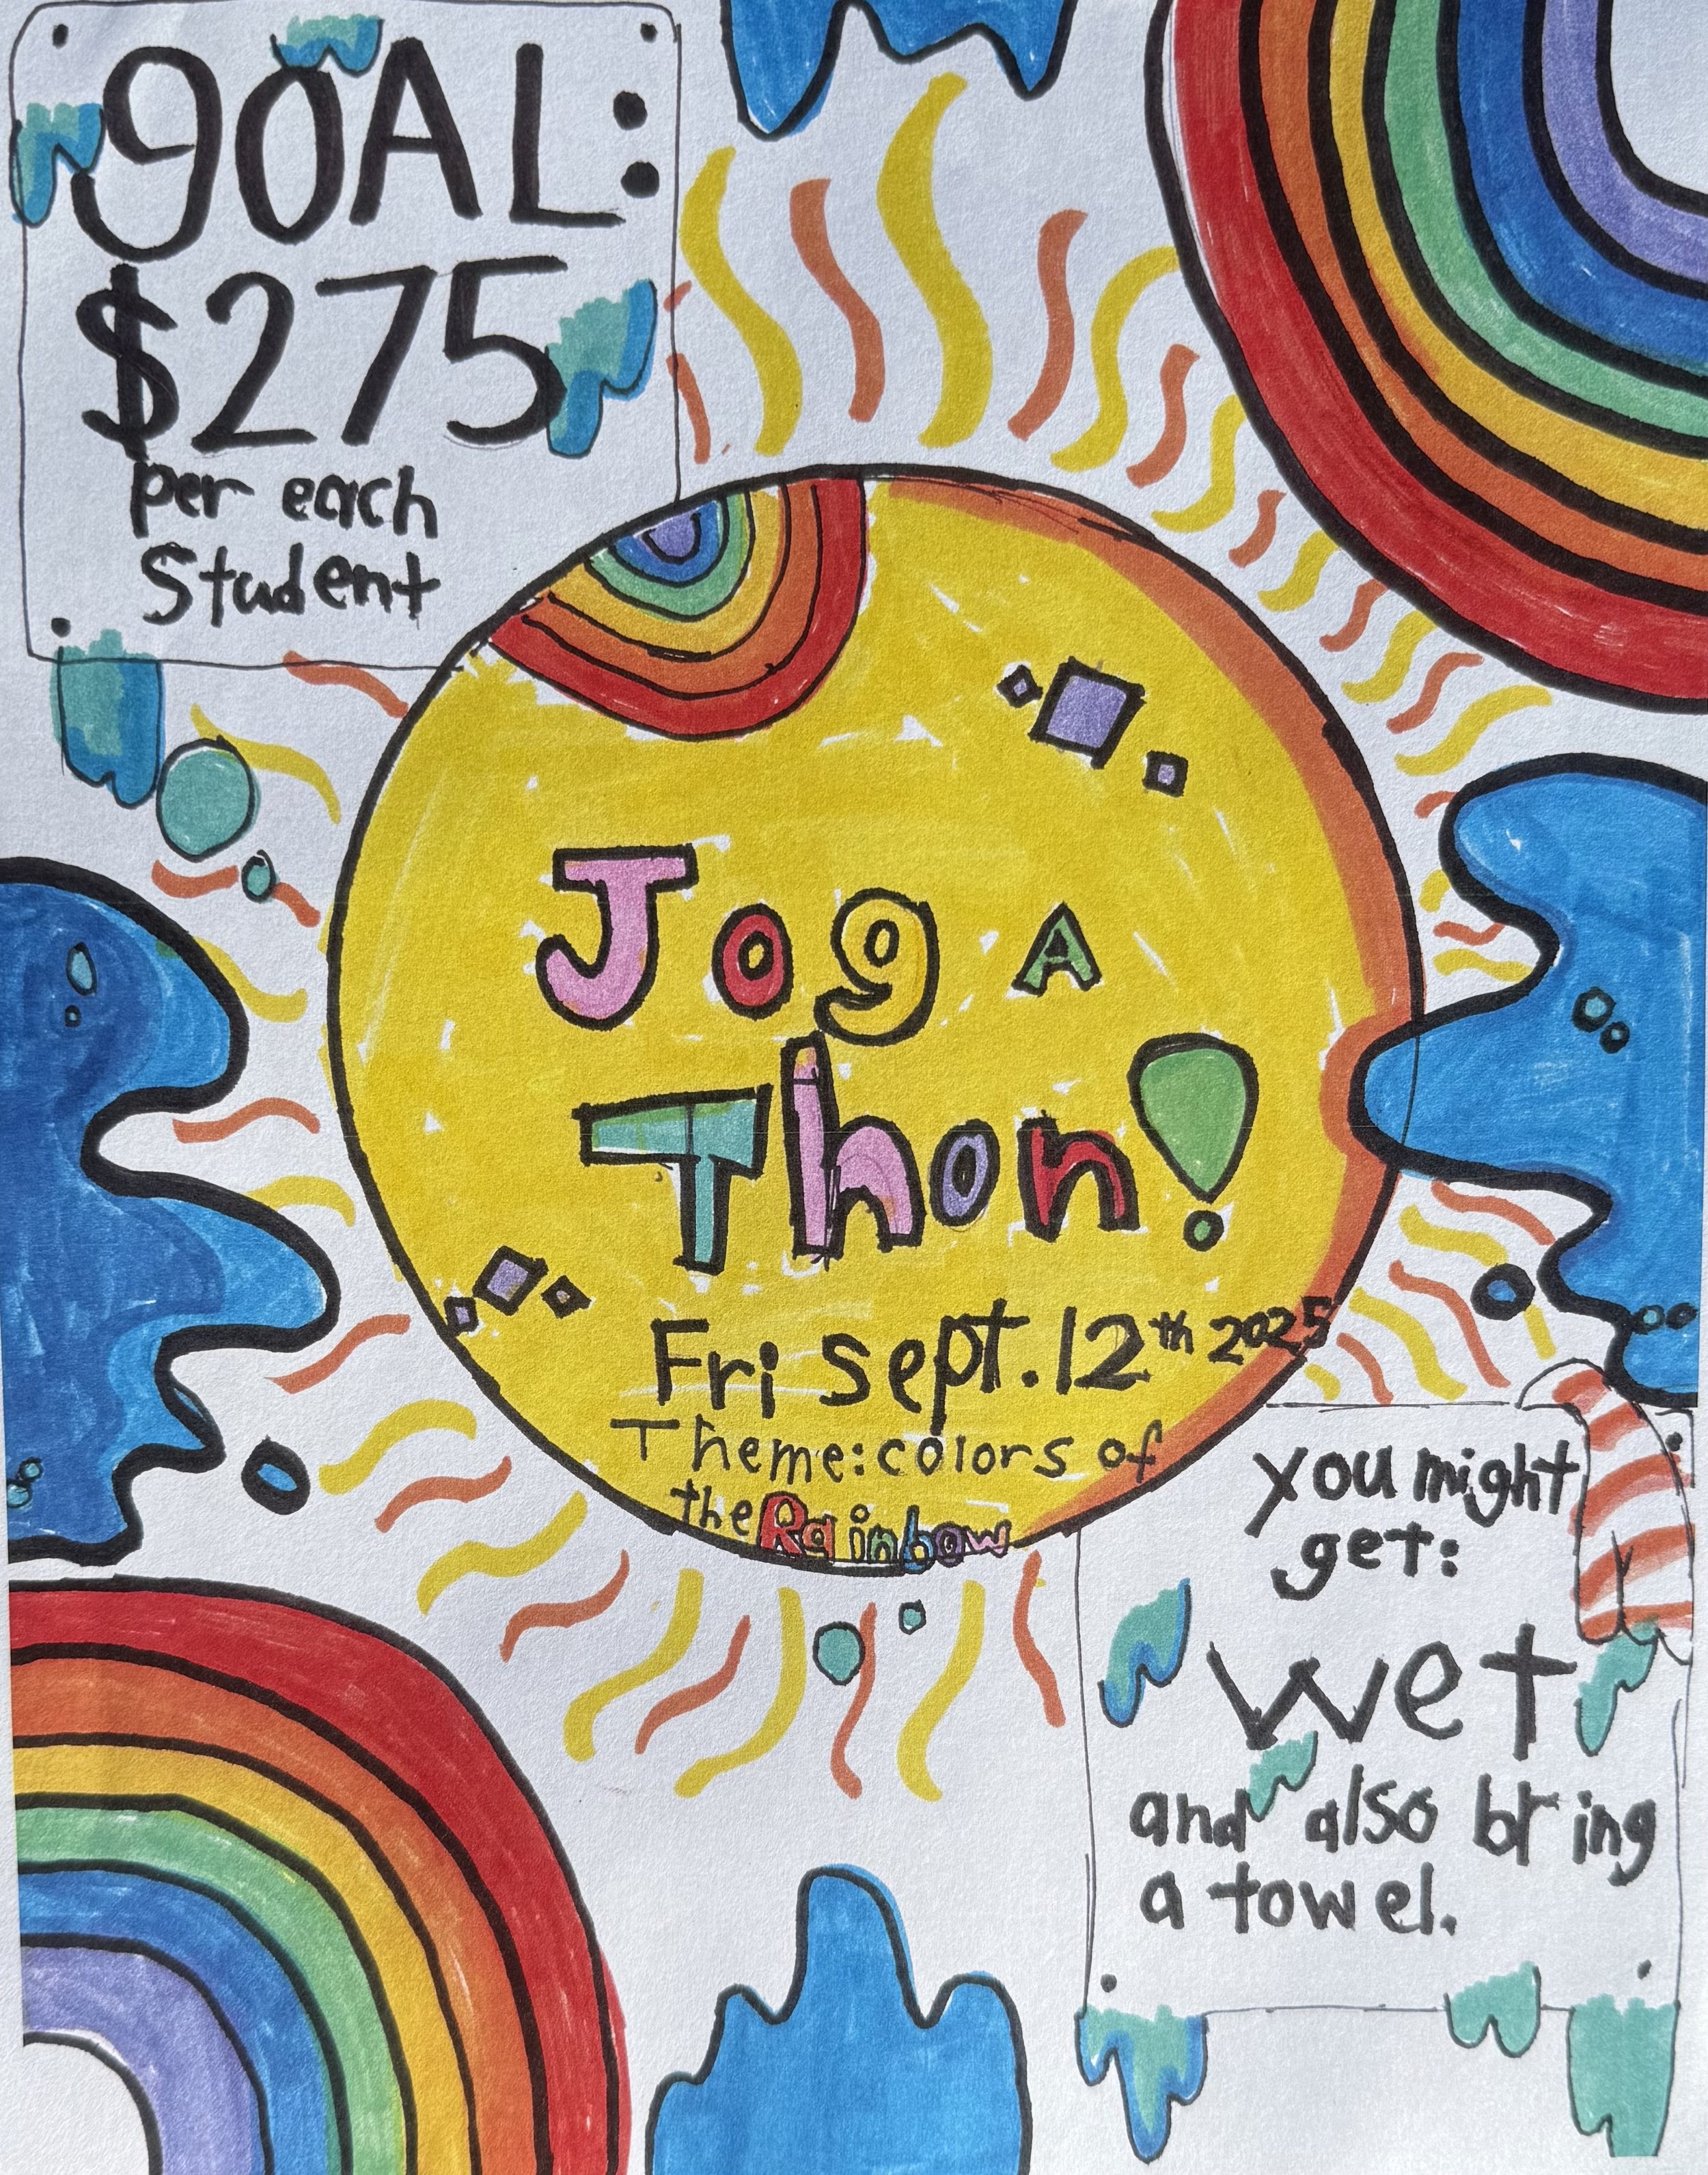 gOAL:
$275
per each
Student
Jog A
Thon!
Fri Sept. 12th 2025
Theme: colors of
the Rainbow
you might
get:
wet
and also bring
a towel.